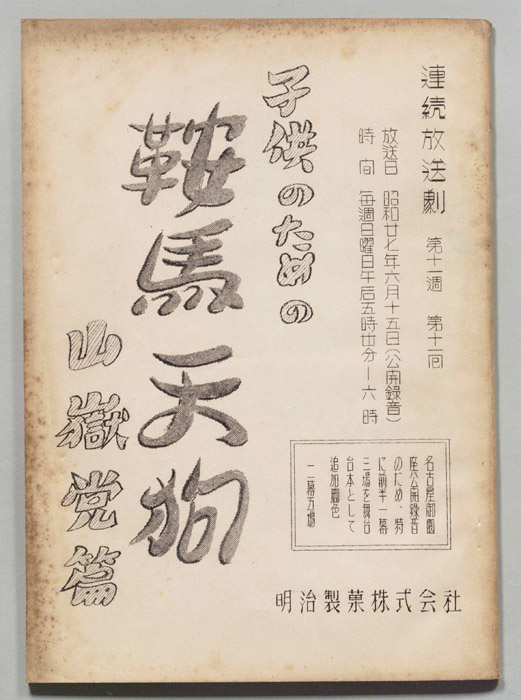 連続放送劇 第十一週 第十一回
放送日 昭和廿七年六月十五日(公開錄音)
時間 毎週日曜日午后五時廿分―六時
子供のための
鞍馬天狗
山嶽党篇
名古屋御園
座公開錄音
のため、特
に前半一幕
三場を舞台
台本として
追加脚色
一二幕五場
明治製菓株式会社